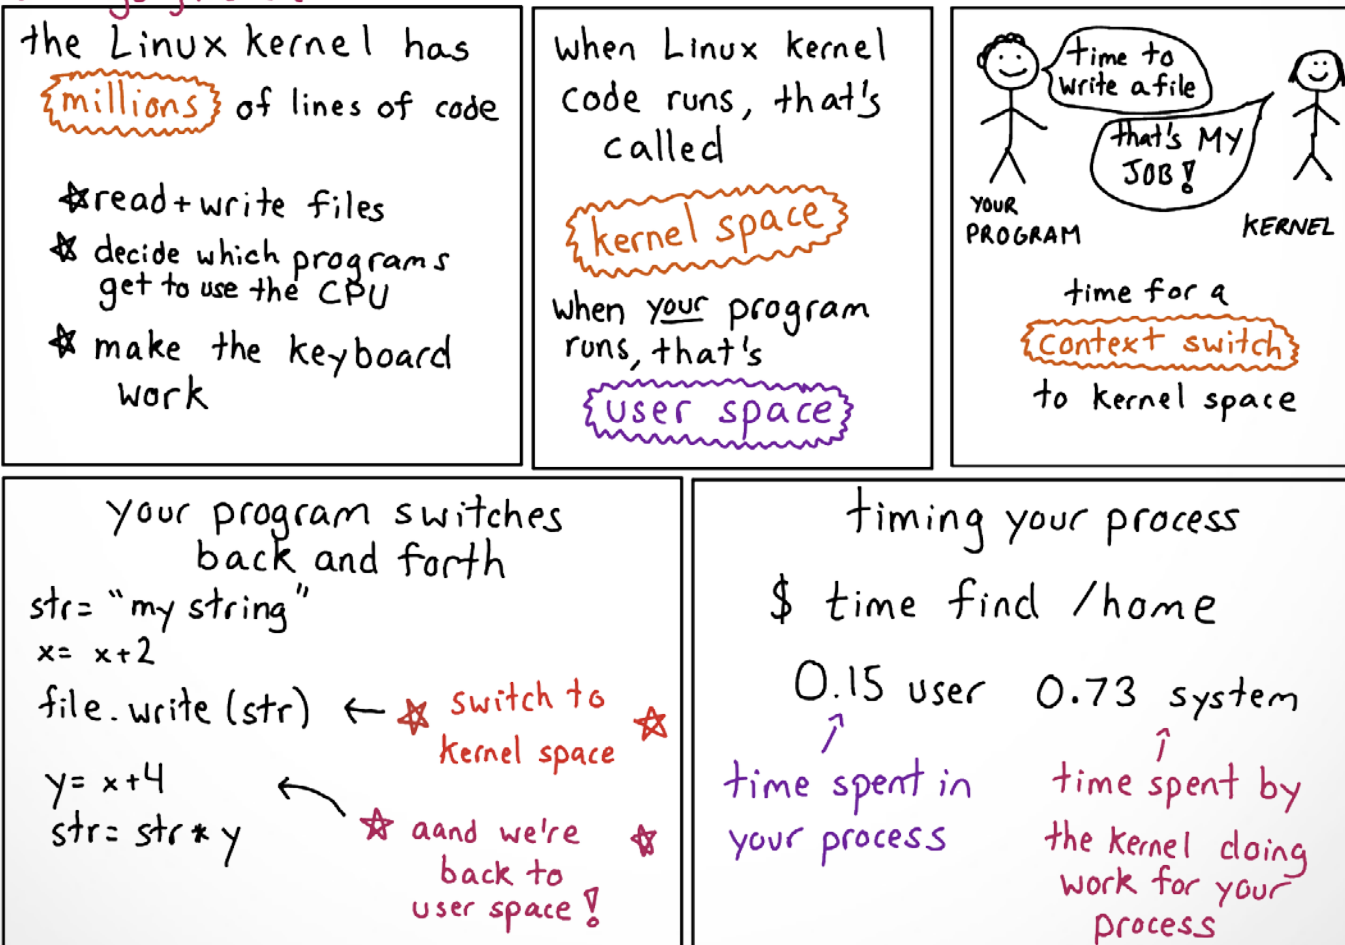 the Linux kernel has
millions of lines of code
☆ read + write files
☆ decide which programs
get to use the CPU
☆ make the keyboard
work
when Linux kernel
code runs, that's
called
kernel space
when your program
runs, that's
user space
time to
write a file
that's MY
JOB!
YOUR
PROGRAM
KERNEL
time for a
context switch
to kernel space
your program switches
back and forth
str= "my string"
x= x+2
file.write (str) ← ☆ switch to ☆
kernel space
y= x+4
str= str * y
☆ aand we're ☆
back to
user space!
timing your process
$ time find /home
0.15 user
0.73 system
time spent in
your process
time spent by
the kernel doing
work for your
process